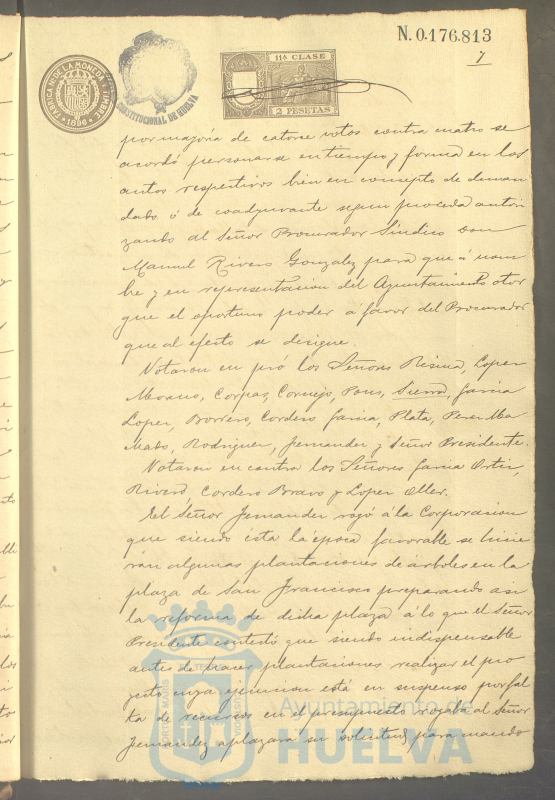 N. 0.176.813
7
FABRICA N. DE LA MONEDA Y TIMBRE
1896
CONSTITUCIONAL DE HUELVA
11ª CLASE
2 PESETAS
por mayoría de catorce votos contra cuatro se
acordó personarse en tiempo y forma en los
autos respectivos bien en concepto de deman
dado ó de coadyuvante segun proceda autori
zando al Señor Procurador Síndico Don
Manuel Rivero Gonzalez para que á nom
bre y en representacion del Ayuntamiento otor
gue el oportuno poder á favor del Procurador
que al efecto se designe.
Votaron en pró los Señores Lopez
Moreno, Corpas, Cornejo, Pons, Sierra, Garcia
Lopez, Borrero, Cordero Garcia, Plata, Perez Ma
Mato, Rodriguez, Fernandez y Señor Presidente.
Votaron en contra los Señores Garcia Ortiz,
Rivero, Cordero Bravo y Lopez Oller.
El Señor Fernandez rogó á la Corporacion
que siendo ésta la época favorable se hicie
rán algunas plantaciones de árboles en la
plaza de San Francisco preparando asi
la reforma de dicha plaza á lo que el Señor
Presidente contestó que siendo indispensable
antes de hacer plantaciones realizar el pro
yecto cuya ejecucion está en suspenso por fal
ta de recursos en el presupuesto rogaba al Señor
Fernandez aplazara su solicitud para cuando
Ayuntamiento de
HUELVA